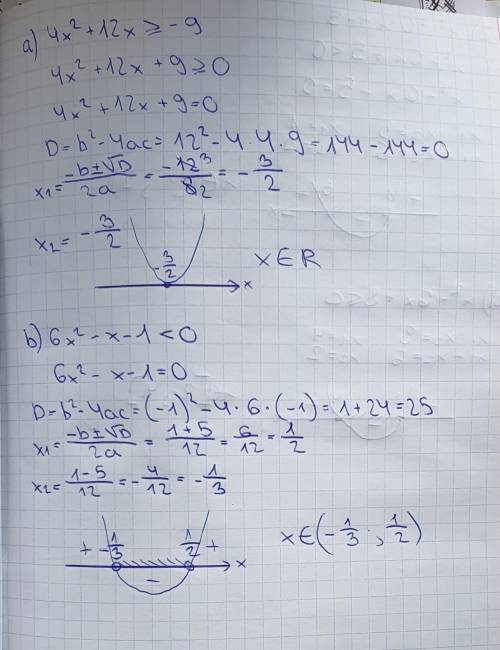 a) 4x² + 12x ≥ -9
4x² + 12x + 9 ≥ 0
4x² + 12x + 9 = 0
D = b² - 4ac = 12² - 4 · 4 · 9 = 144 - 144 = 0
x₁ = (-b ± √D)/(2a) = -12 3/8 2 = -3/2
x₂ = -3/2
-3/2
x
x ∈ R
b) 6x² - x - 1 < 0
6x² - x - 1 = 0
D = b² - 4ac = (-1)² - 4 · 6 · (-1) = 1 + 24 = 25
x₁ = (-b ± √D)/(2a) = (1 + 5)/12 = 6/12 = 1/2
x₂ = (1 - 5)/12 = -4/12 = -1/3
+ -1/3 1/2 +
-
x
x ∈ (-1/3 ; 1/2)